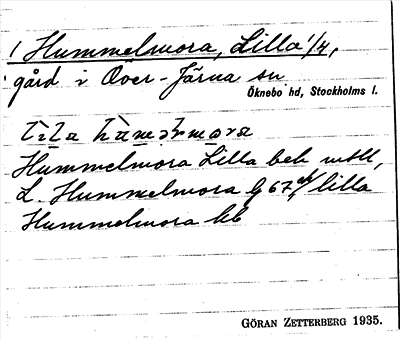 1 Hummelmora, Lilla 1/4,
gård i Över-Järna sn
Öknebo hd, Stockholms l.
Hummelmora Lilla bek
L. Hummelmora G 67 lilla
Hummelmora hb
GÖRAN ZETTERBERG 1935.